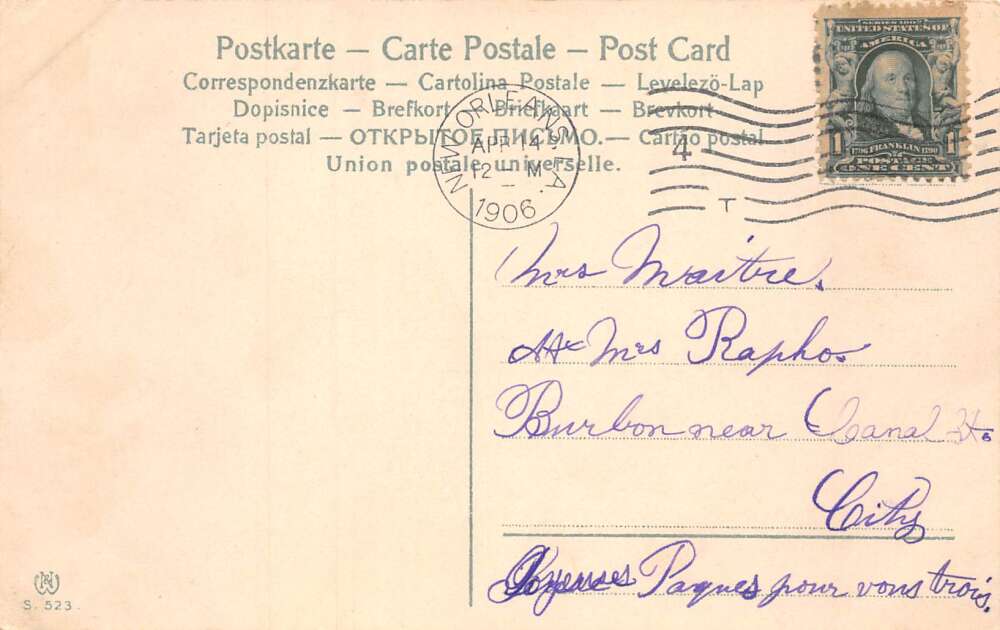 Postkarte — Carte Postale — Post Card
Correspondenzkarte — Cartolina Postale — Levelezö-Lap
Dopisnice — Brefkort — Briefkaart — Brevkort
Tarjeta postal — ОТКРЫТОЕ ПИСЬМО. — Cartão postal
Union postale universelle.
NEW ORLEANS, LA.
APR 14
12 – M
1906
4
T
SERIES 1902
UNITED STATES OF
AMERICA
1706 FRANKLIN 1790
1 POSTAGE 1
ONE CENT
Mrs Maitre.
At Mrs Rapho.
Burbon near Canal St.
City
Joyeuses Paques pour vous trois.
S. 523.